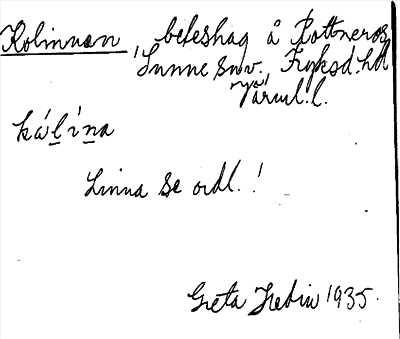 Kolinnan, beteshag å Rottneros,
Sunne snv. Fryksd. hd
Värml. l.
kálína
Linna se ordl.!
Greta Hedin 1935.